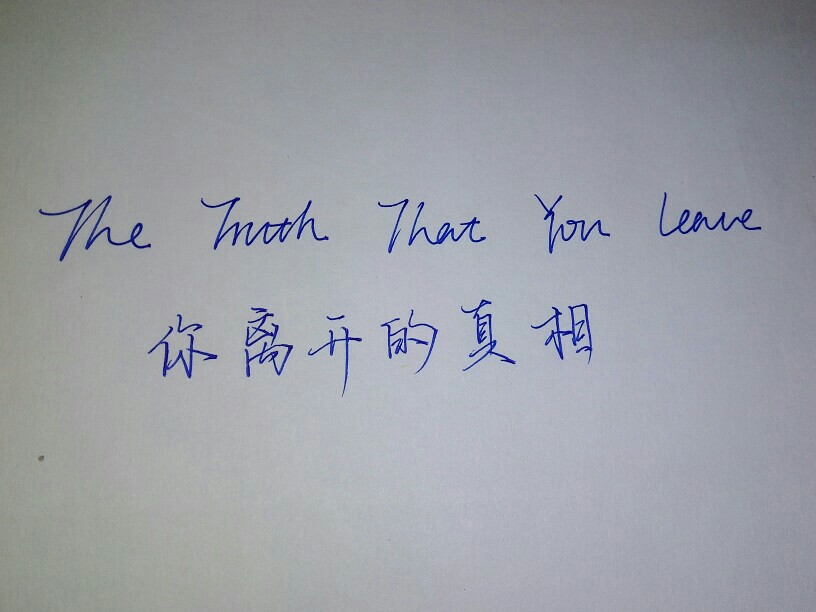 The Truth That You leave
你离开的真相